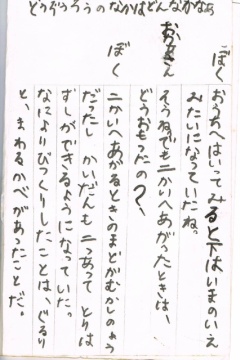 どうぞうろうのなかはどんなかなあ
ぼく
おうちへはいってみると下はいまのいえ
みたいになっていたね。
おかあさん
そうねでも二かいへあがったときは、
どうおもったの?、
ぼく
二かいへあがるときのまどがむかしのよう
だったし かいだんも二つあって とりは
ずしができるようになっていた。
なによりびっくりしたことは、ぐるり
と、まわるかべがあったことだ。